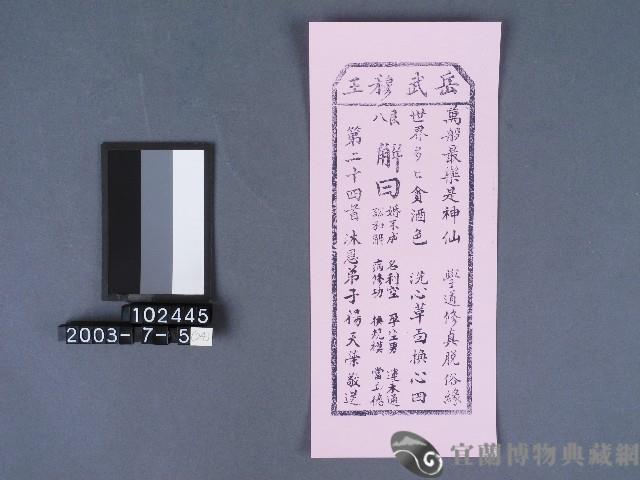 岳武穆王
萬般最樂是神仙 學道修真脫俗緣
世界多口貪酒色 洗心革面換心田
八艮
解曰
婚不成 名利空 孕生男 運未通
訟和解 病修功 換規模 當立德
第二十四首 沐恩弟子楊天榮敬送
102445
2003-7-5
宜蘭博物典藏網